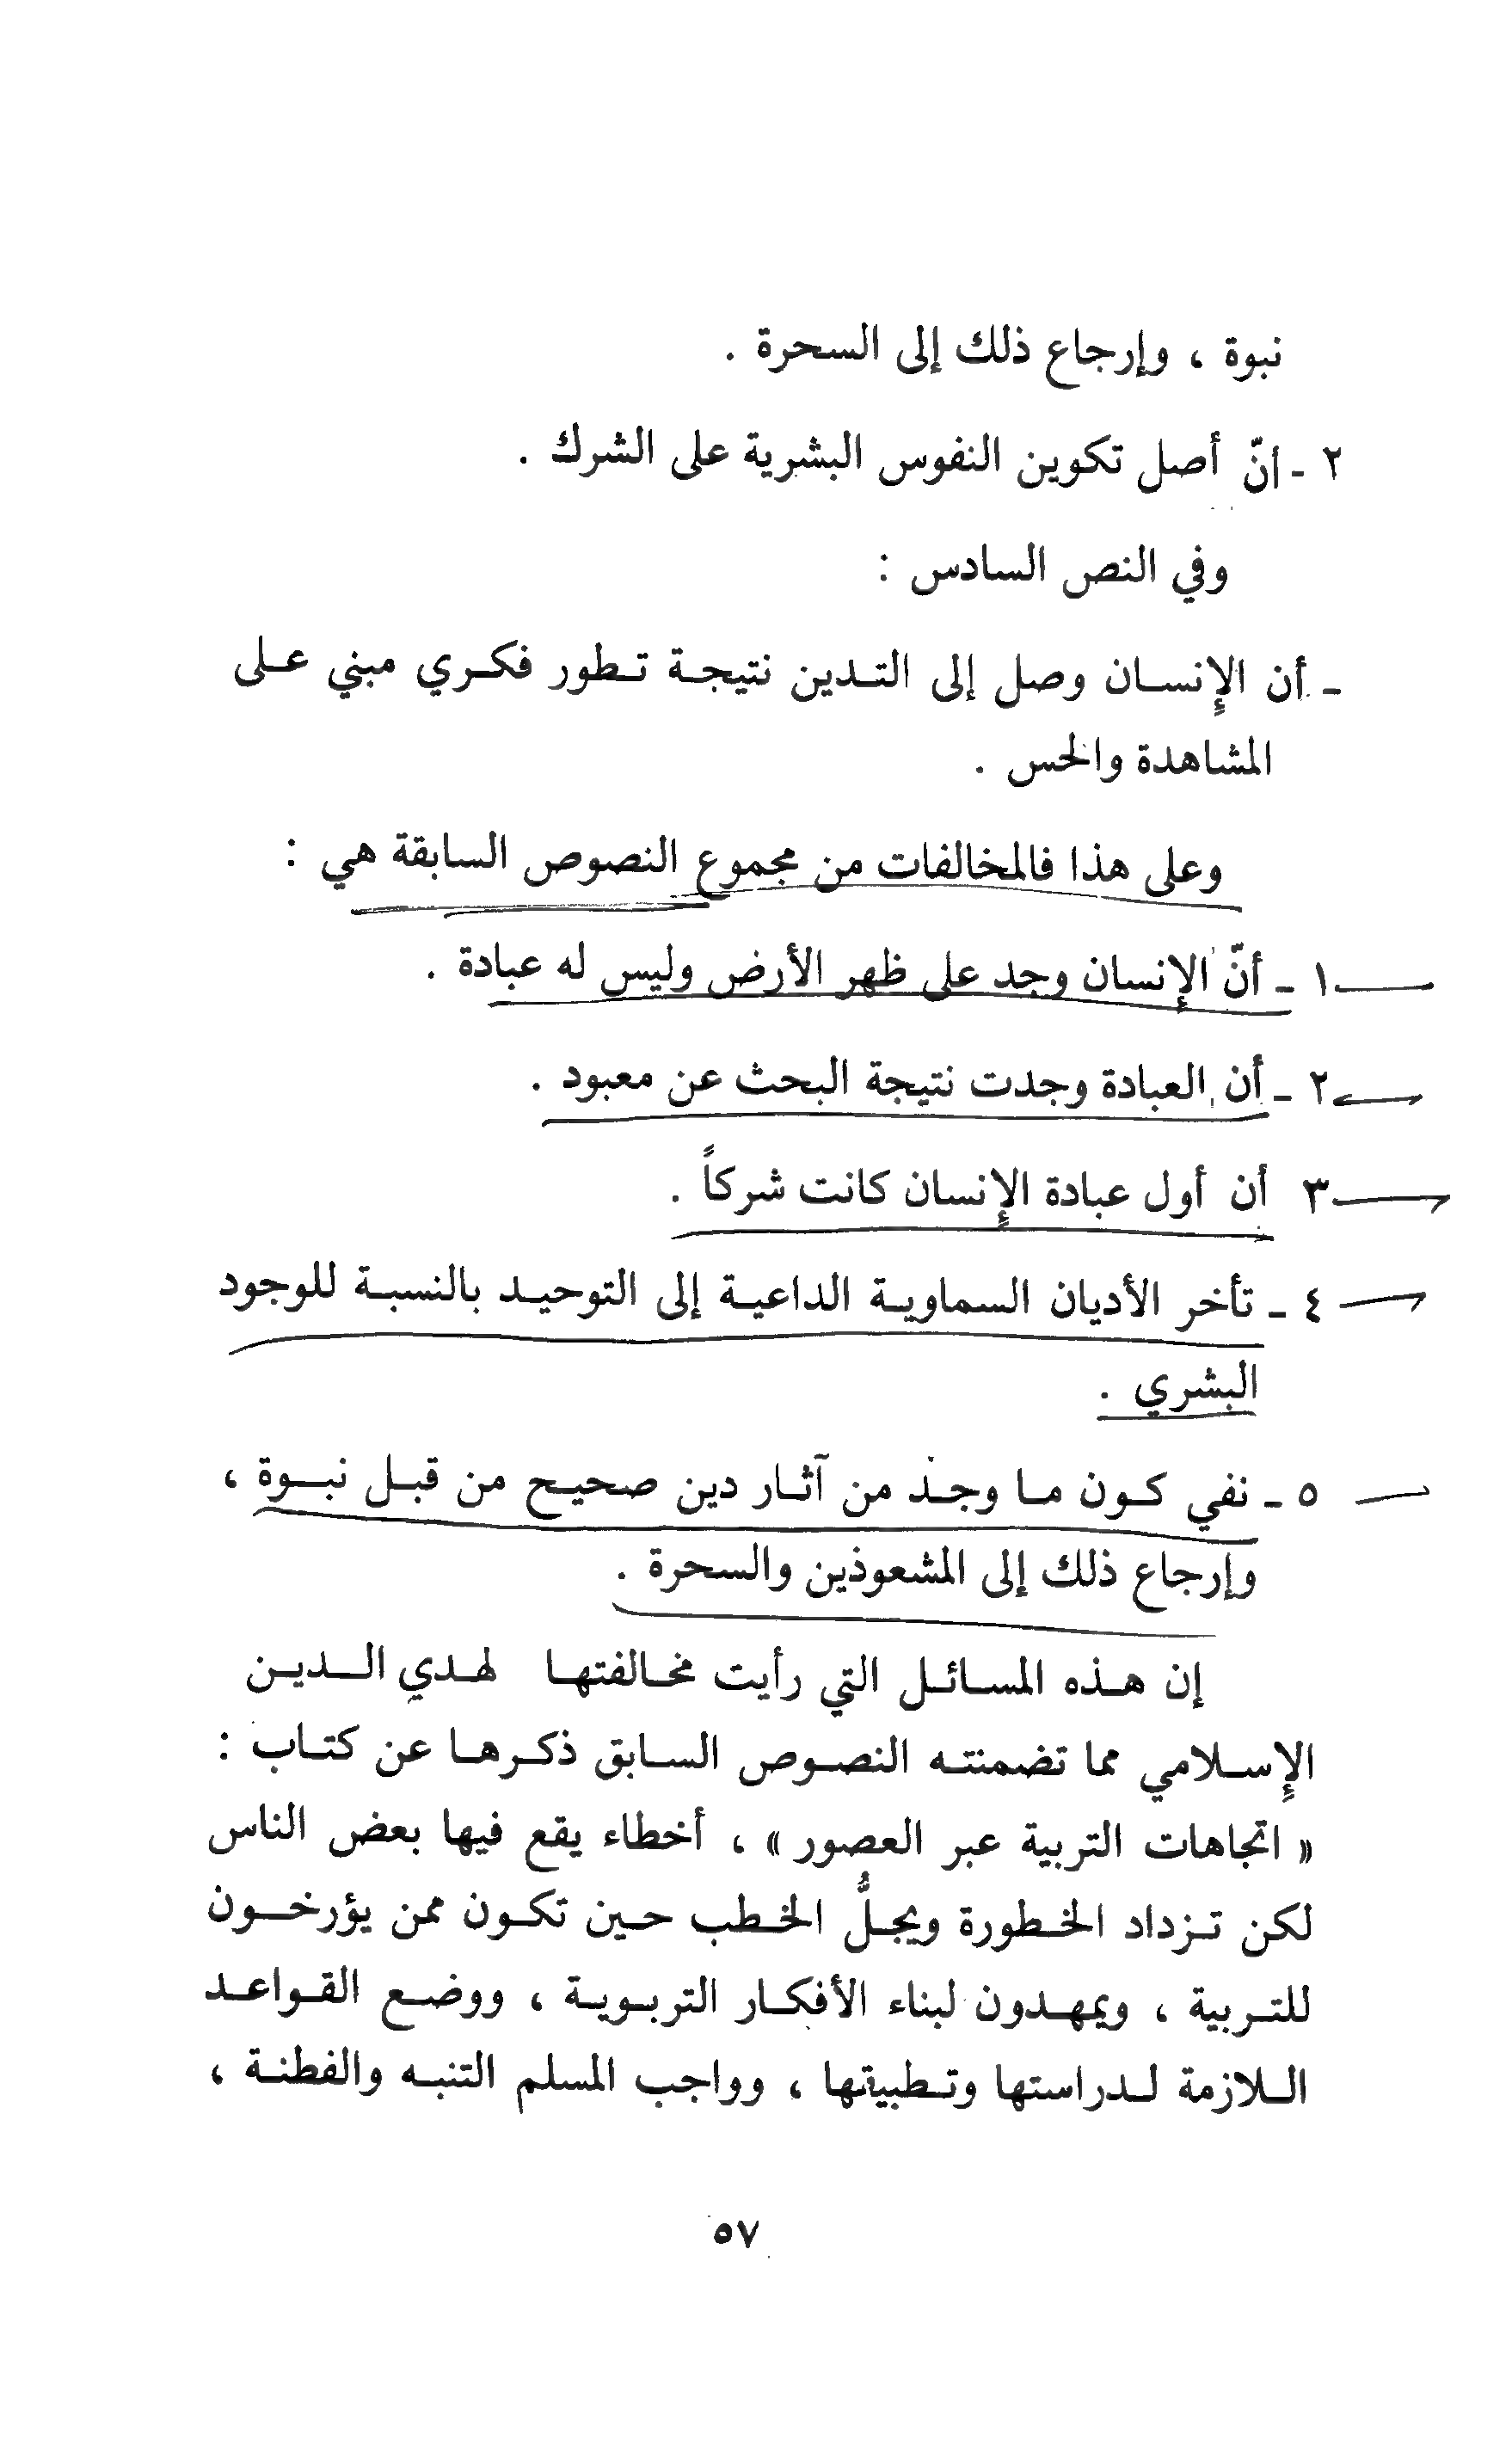 نبوة ، وإرجاع ذلك إلى السحرة .
٢ - انّ أصل تكوين النفوس البشرية على الشرك .
وفي النص السادس :
- أن الإنسان وصل إلى التدين نتيجة تطور فكري مبني على
المشاهدة والحس .
وعلى هذا فالمخالفات من مجموع النصوص السابقة هي :
١ - أنّ الإنسان وجد على ظهر الأرض وليس له عبادة .
٢ - أن العبادة وجدت نتيجة البحث عن معبود .
٣ أن أول عبادة الإنسان كانت شركاً .
٤ - تأخر الأديان السماوية الداعية إلى التوحيد بالنسبة للوجود
البشري .
٥ - نفي كون ما وجد من آثار دين صحيح من قبل نبوة ،
وإرجاع ذلك إلى المشعوذين والسحرة .
إن هذه المسائل التي رأيت مخالفتها لهدي الدين
الإسلامي مما تضمنته النصوص السابق ذكرها عن كتاب :
« اتجاهات التربية عبر العصور » ، أخطاء يقع فيها بعض الناس
لكن تزداد الخطورة ويجلُّ الخطب حين تكون ممن يؤرخون
للتربية ، ويمهدون لبناء الأفكار التربوية ، ووضع القواعد
اللازمة لدراستها وتطبيقها ، وواجب المسلم التنبه والفطنة ،
٥٧